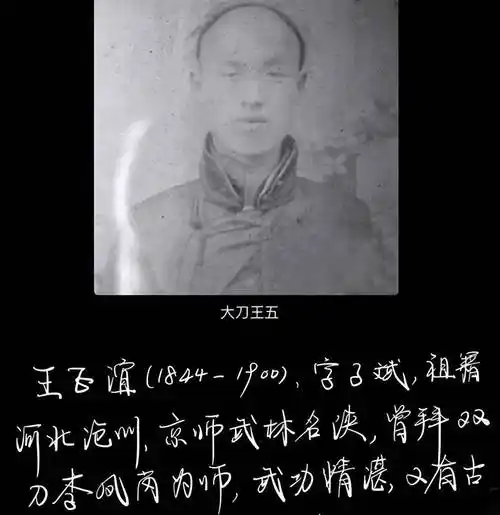 大刀王五
王正谊(1844-1900),字子斌,祖籍
河北沧州,京师武林名侠,曾拜双
刀李凤岗为师,武功精湛,又有古